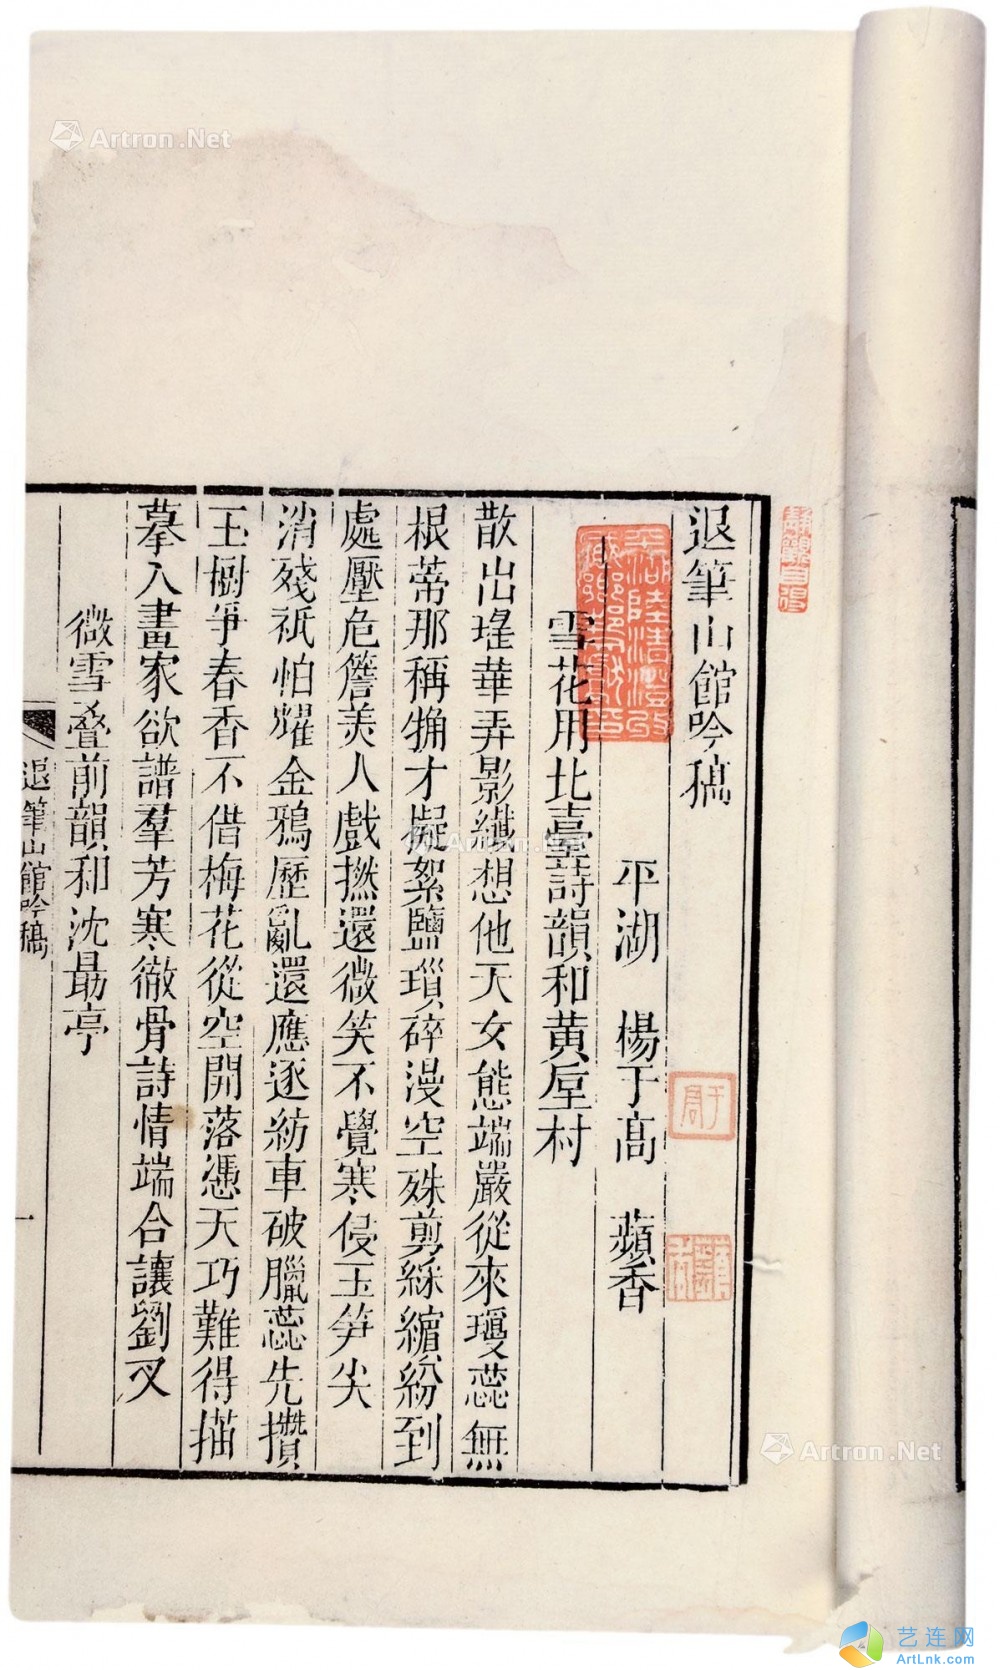 退筆山館吟稿
平湖 楊于高 蘋香
雪花用北臺詩韻和黃垕村
散出瑤華弄影纖想他天女態端嚴從來瓊蕊無
根蒂那稱觕才擬絮鹽瑣碎漫空殊剪綵繽紛到
處壓危簷美人戲撚還微笑不覺寒侵玉笋尖
消殘祇怕耀金鴉歷亂還應逐紡車破臘蕊先攢
玉樹爭春香不借梅花從空開落憑天巧難得描
摹入畫家欲譜羣芳寒徹骨詩情端合讓劉叉
微雪疊前韻和沈勗亭
退筆山館吟稿
一
靜觀自得
于高
Artron.Net
Artron.Net
Artron.Net
艺连网
ArtLnk.com